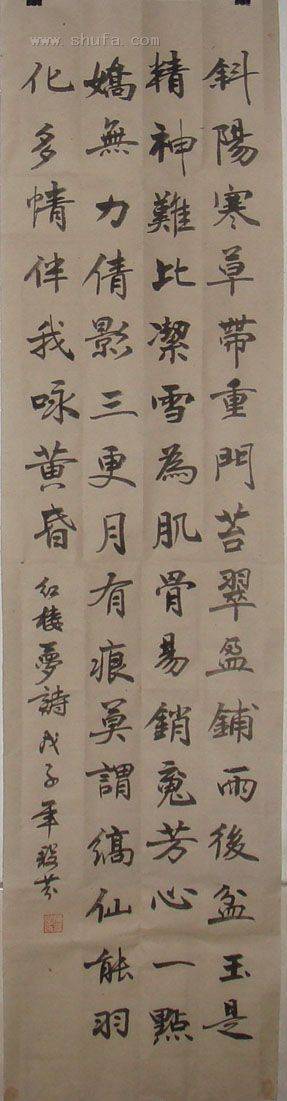 www.shufa.com
斜陽寒草帶重門苔翠盈鋪雨後盆玉是
精神難比潔雪為肌骨易銷魂芳心一點
嬌無力倩影三更月有痕莫謂縞仙能羽
化多情伴我咏黃昏
红楼夢詩戊子年